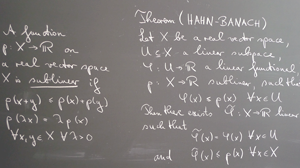 A function
p: X → ℝ on
a real vector space
X is sublinear if
p(x+y) ≤ p(x)+p(y)
p(λx) = λ p(x)
∀x,y∈X ∀λ>0
Theorem (HAHN-BANACH)
Let X be a real vector space,
U ⊆ X a linear subspace,
φ: U → ℝ a linear functional,
p: X → ℝ sublinear, such that
φ(x) ≤ p(x) ∀x∈U
Then there exists φ̃: X→ℝ linear
such that
φ̃(x) = φ(x) ∀x∈U
and φ̃(x) ≤ p(x) ∀x∈X